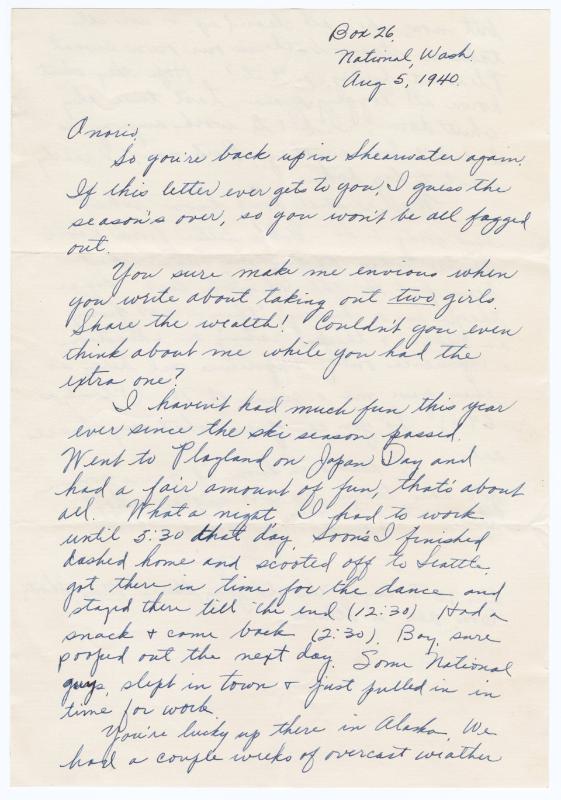 Box 26
National, Wash.
Aug 5, 1940.
Onorio,
So you're back up in Shearwater again.
If this letter ever gets to you, I guess the
season's over, so you won't be all fagged
out.
You sure make me envious when
you write about taking out two girls.
Share the wealth! Couldn't you even
think about me while you had the
extra one?
I haven't had much fun this year
ever since the ski season passed.
Went to Playland on Japan Day and
had a fair amount of fun, that's about
all. What a night, I had to work
until 5:30 that day. Soon's I finished
dashed home and scooted off to Seattle,
got there in time for the dance and
stayed there till the end (12:30) Had a
snack + come back (2:30). Boy, sure
pooped out the next day. Some National
guys, slept in town + just pulled in in
time for work.
You're lucky up there in Alaska. We
had a couple weeks of overcast weather